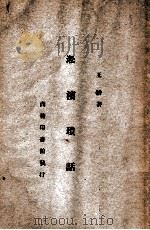 王韜著
淞濱瑣話
商務印書館發行